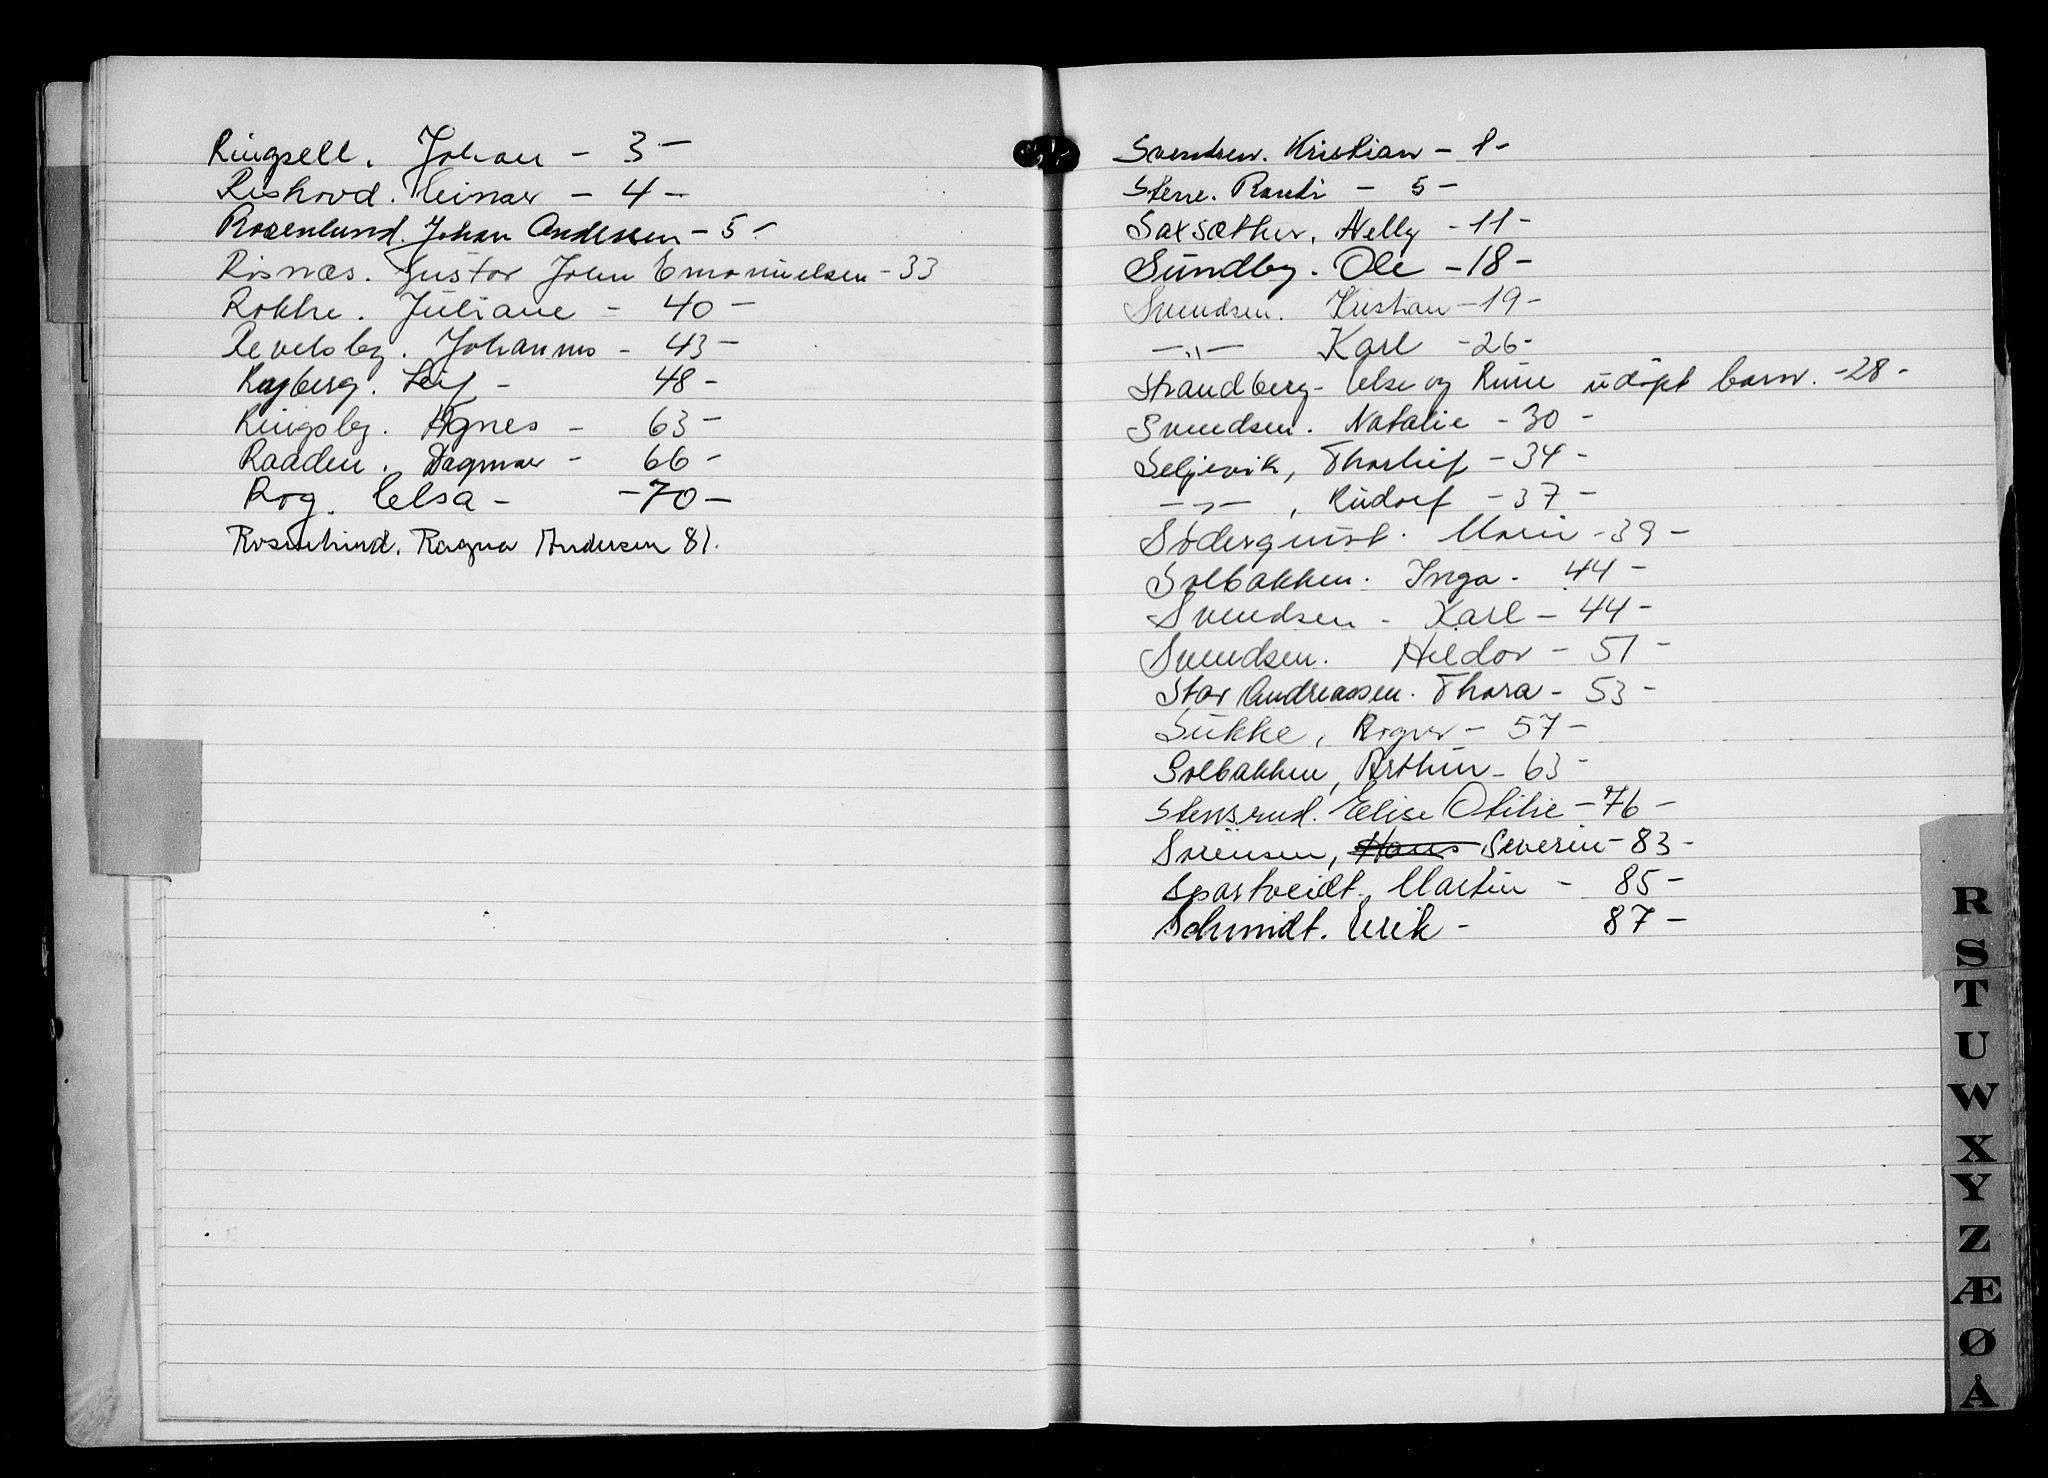 Ringsell. Johan - 3 -
Riskovd. Einar - 4 -
Rosenlund. Johan Andersen - 5 -
Risnæs. Gustav John Emanuelsen - 33
Rokke. Juliane - 40 -
Revelsby. Johannes - 43 -
Rajberg. Leif - 48 -
Ringsby. Agnes - 63 -
Raaden. Dagmar - 66 -
Rog. Elsa - - 70 -
Rosenlund. Ragna Andersen 81.
Svendsen. Kristian - 1 -
Stene. Randi - 5 -
Saxsæther, Nelly - 11 -
Sundby. Ole - 18 -
Svendsen. Kristian - 19 -
-"- Karl - 26 -
Strandberg - Else og Rune udøpt barn. - 28 -
Svendsen. Natalie - 30 -
Seljevik, Thorleif - 34 -
-"-, Rudolf - 37 -
Söderquist. Marie - 39 -
Solbakken. Inga - 44 -
Svendsen - Karl - 44 -
Svendsen. Heldor - 51 -
Stor Andreassen. Thora - 53 -
Sukke, Ragner - 57 -
Solbakken, Arthur - 63 -
Stensrud. Elise Otilie - 76 -
Sörensen, Hans Severin - 83 -
Spartveidt. Martin - 85 -
Schmidt. Erik - 87 -
R
S
T
U
W
X
Y
Z
Æ
Ø
Å